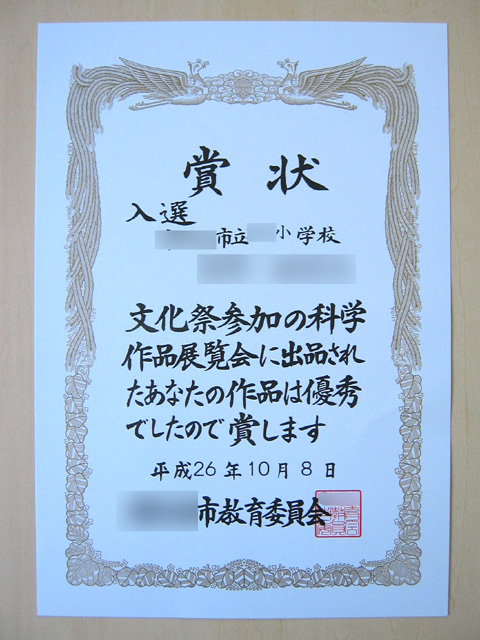 賞状
入選
市立 小学校
文化祭参加の科学
作品展覧会に出品され
たあなたの作品は優秀
でしたので賞します
平成26年10月8日
市教育委員会